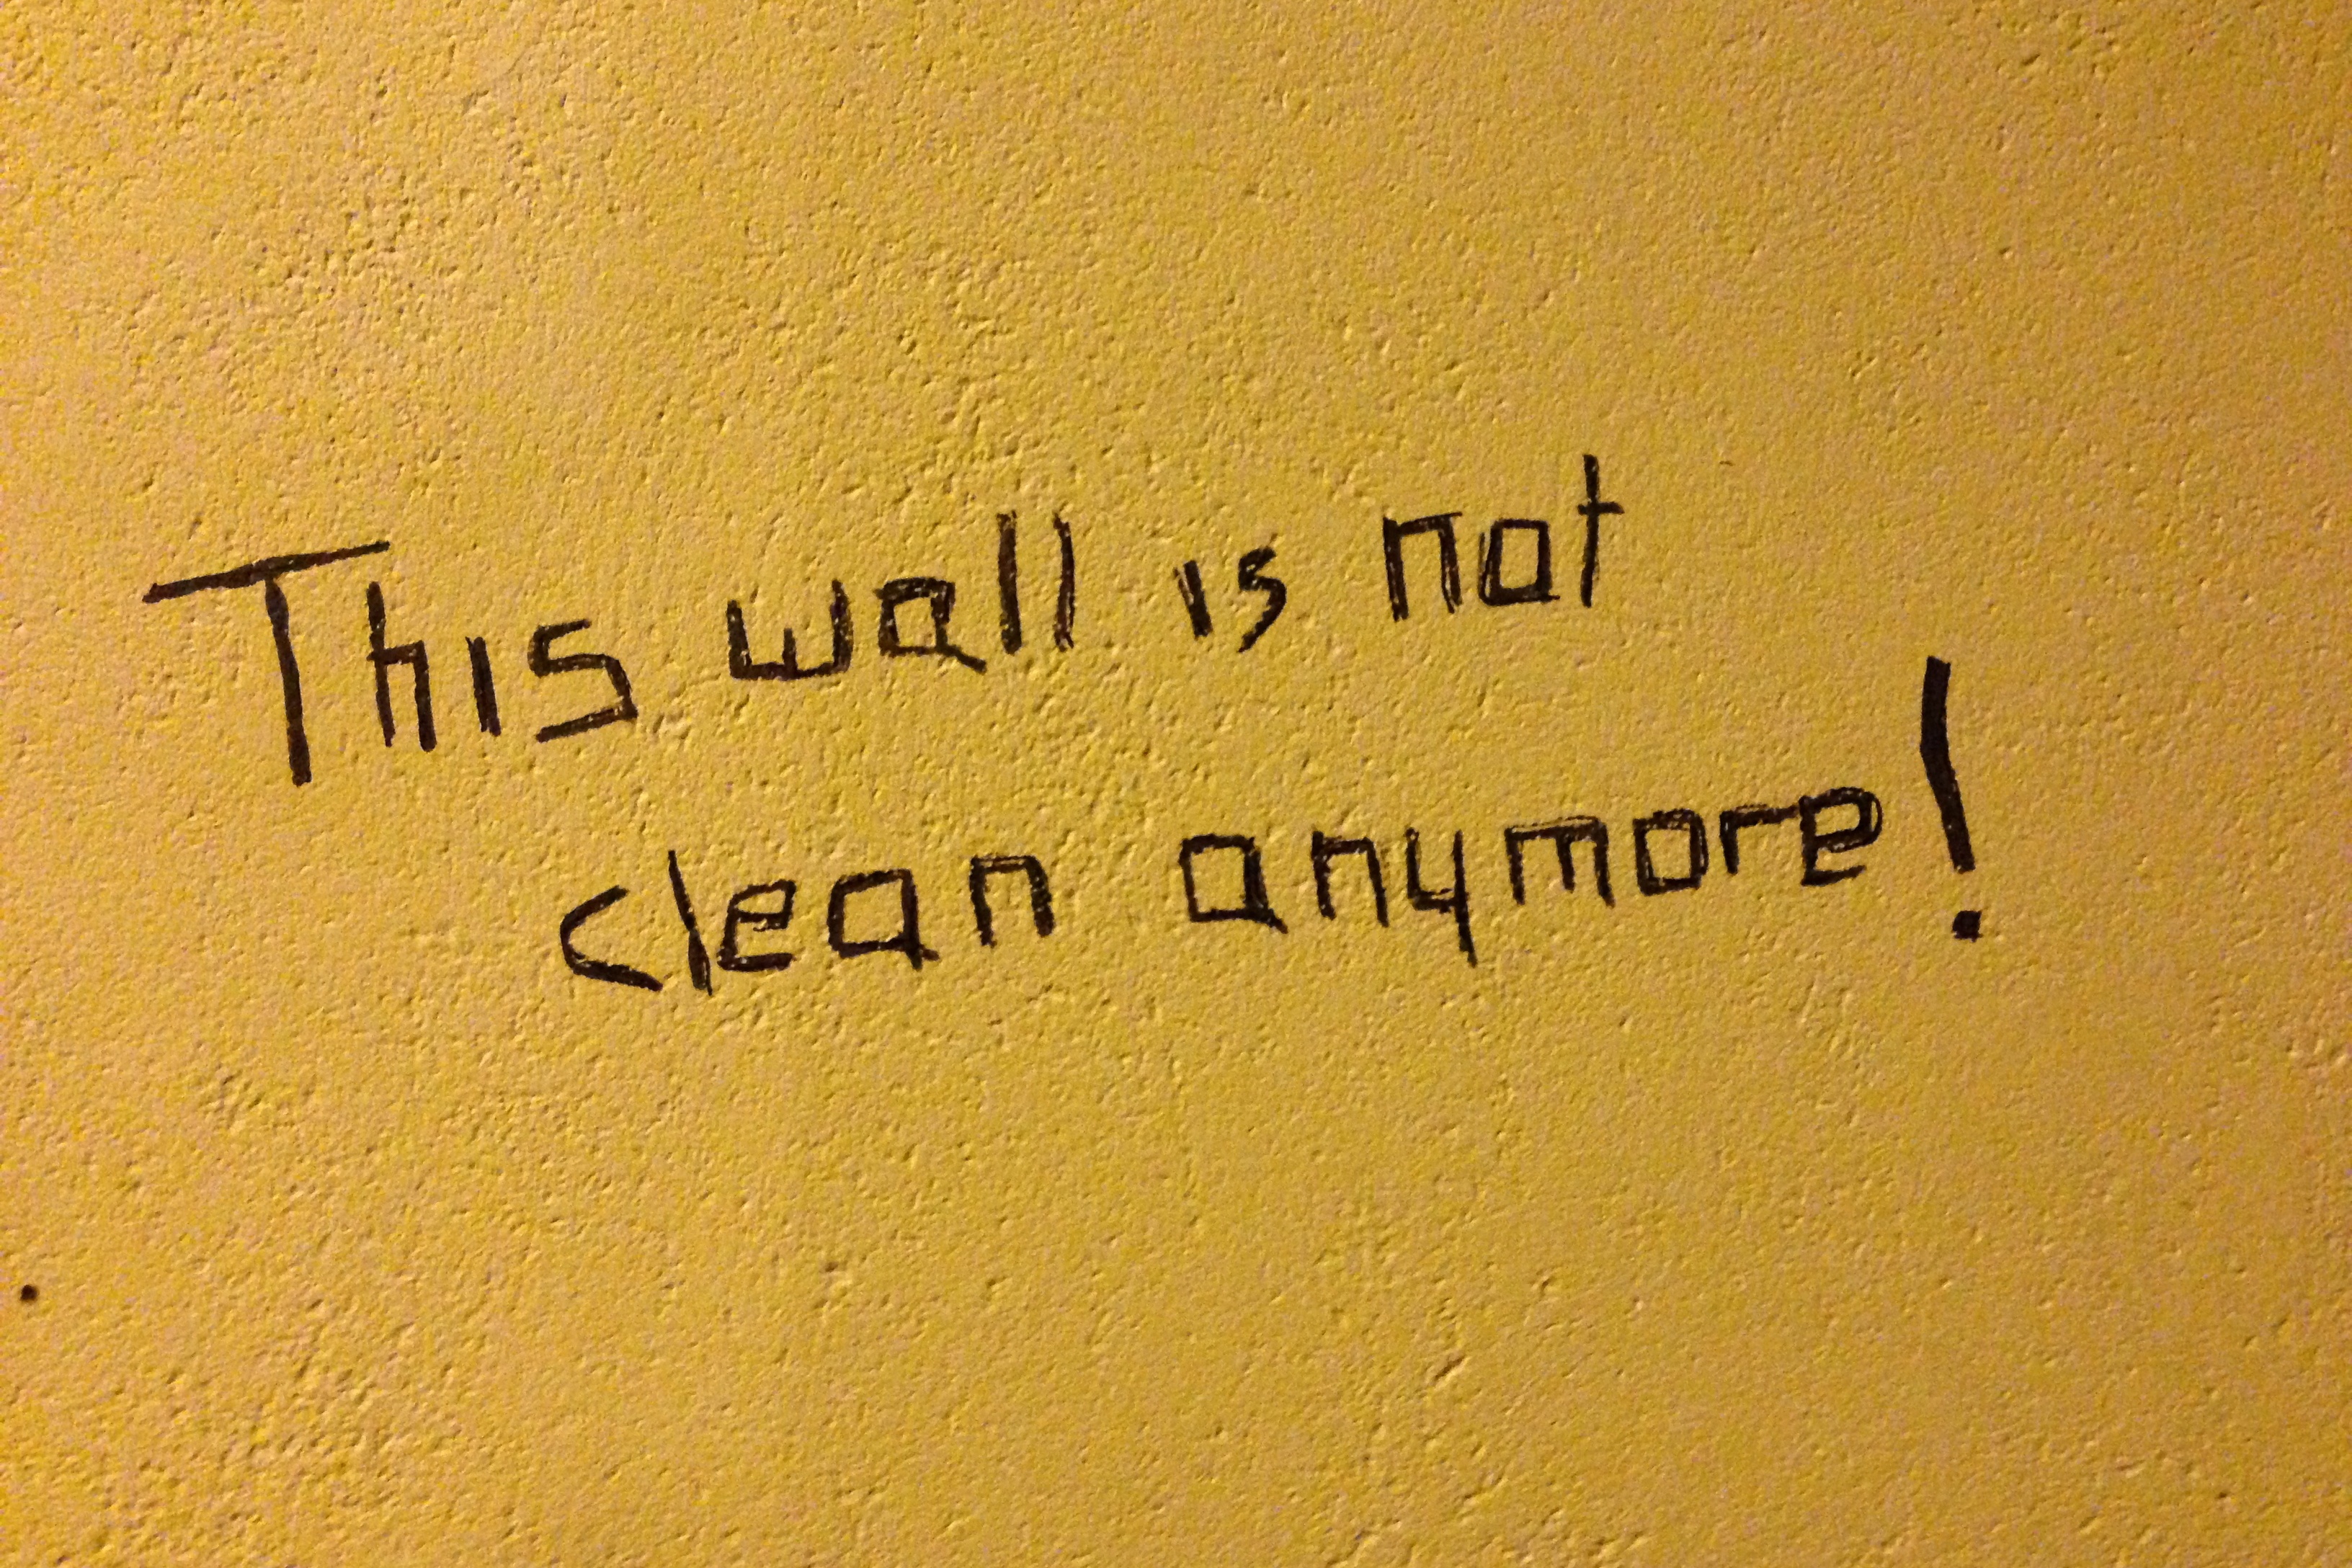 This wall is not
clean anymore!